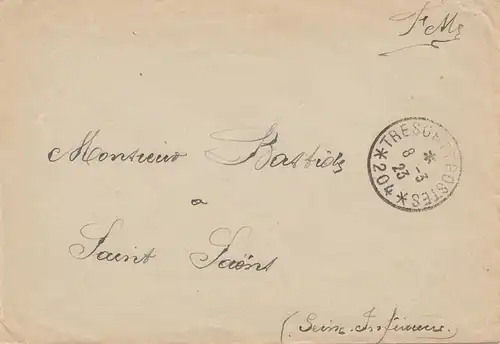 F.M.
TRESOR ET POSTES
* 8 -3 23
*204*
Monsieur Bastide
a
Saint Saëns
(Seine Inférieure)